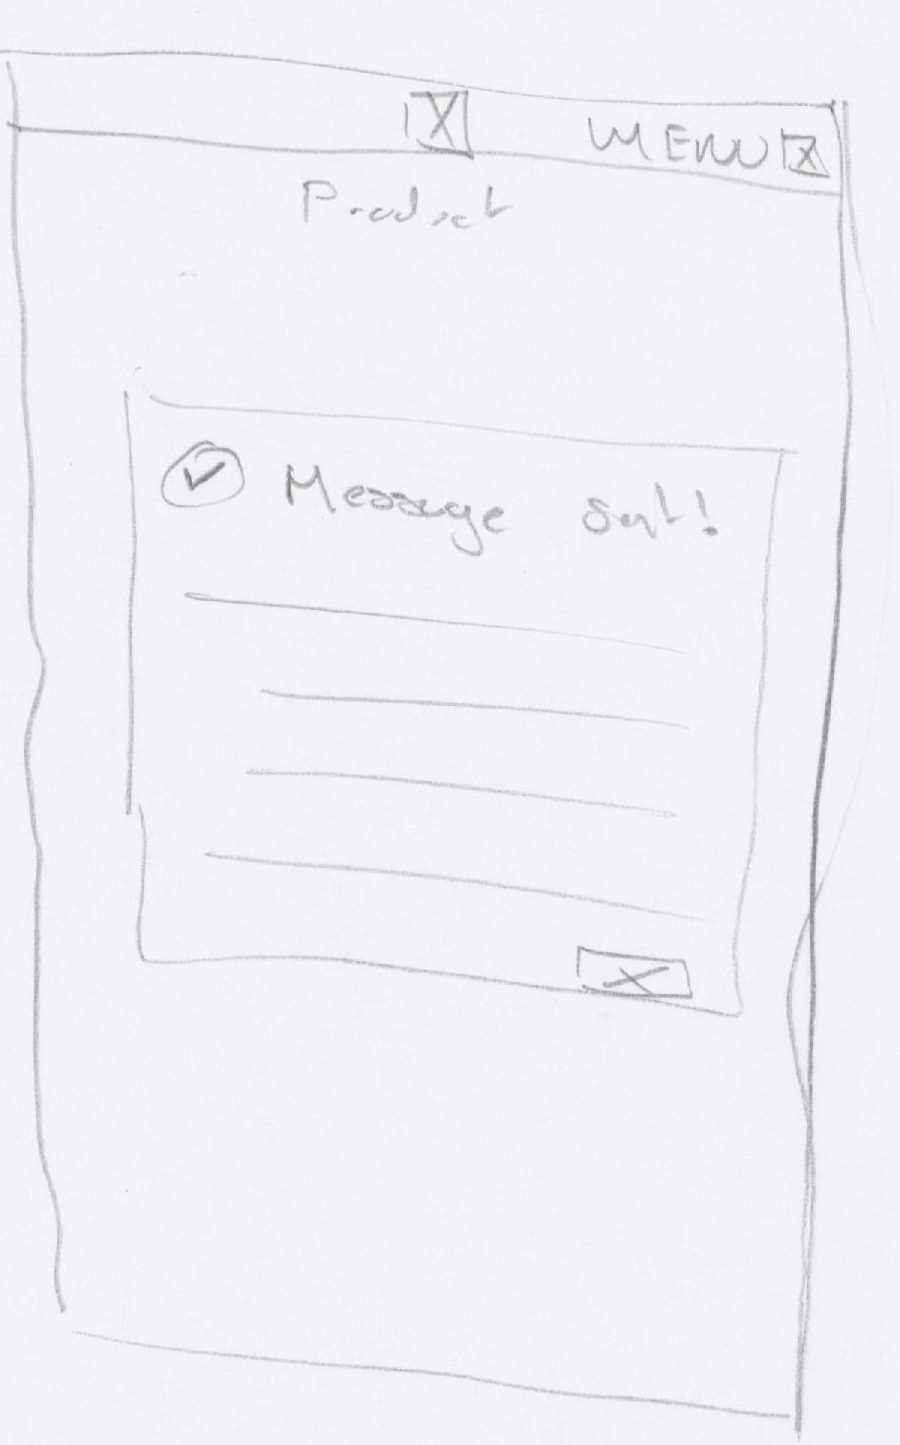 MENU
Product
Message sent!